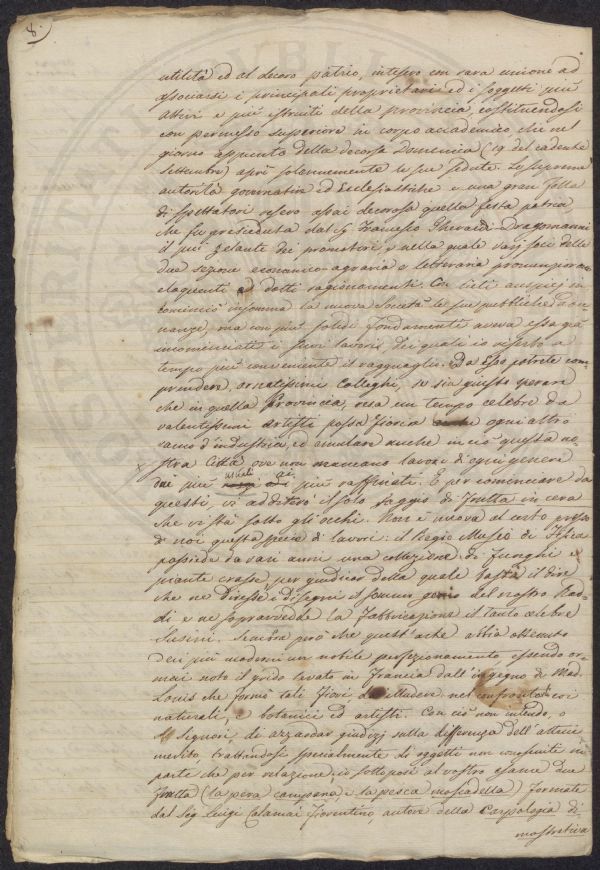 8.
utilità ed al decoro patrio, intesero con rara unione ad
associarsi i principali proprietarj ed i soggetti più
attivi e più istruiti della provincia costituendosi
con permesso superiore in corpo accademico che nel
giorno appunto della decorsa Domenica (19 del cadente
Settembre) aprì solennemente le sue sedute. Le supreme
autorità governative ed Ecclesiastiche e una gran folla
di spettatori resero assai decorosa quella festa patria
che fu presieduta dal Sig Francesco Gherardi Dragomanni
il più zelante dei promotori e nella quale varj soci delle
due sezioni economico-agraria e letteraria pronunziarono
eloquenti e dotti ragionamenti. Con lieti auspicj in-
cominciò insomma la nuova Società le sue pubbliche adu-
nanze, ma con più solidi fondamenti aveva essa già
incominciati i suoi lavori dei quali io riserbo a
tempo più conveniente il ragguaglio. Da esso potrete com-
prendere, ornatissimi Colleghi, se sia giusto sperare
che in quella Provincia, resa un tempo celebre da
valentissimi artisti possa fiorire ogni altro
ramo d'industria, ed emulare anche in ciò questa no-
stra Città ove non mancano lavori di ogni genere
dai più usuali ai più raffinati. E per cominciare da
questi, vi additerò il solo saggio di Frutta in cera
che vi sta sotto gli occhi. Non è nuova al certo presso
di noi questa specie di lavori: il Regio Museo di Fisica
possiede da varj anni una collezione di funghi e
piante crasse, per giudicar della quale basta il dire
che ne diresse i disegni il sommo genio del nostro Rad-
di e ne sopravvedde la fabbricazione il tanto celebre
Susini. Sembra però che quest'arte abbia ottenuto
dei più moderni un nobile perfezionamento essendo or-
mai noto il grido levato in Francia dall'ingegno di Mad.
Louis che formò tali fiori da illudere nel confronto dei
naturali, e botanici ed artisti. Con ciò non intendo, o
Signori, di azzardar giudizj sulla differenza dell'altrui
merito, trattandosi specialmente di oggetti non conosciuti in
parte che per relazione; io sottoposi al vostro esame due
frutta (la pera campana, e la pesca moscadella) formate
dal Sig Luigi Calamai fiorentino, autore della Carpologia di-
mostrativa